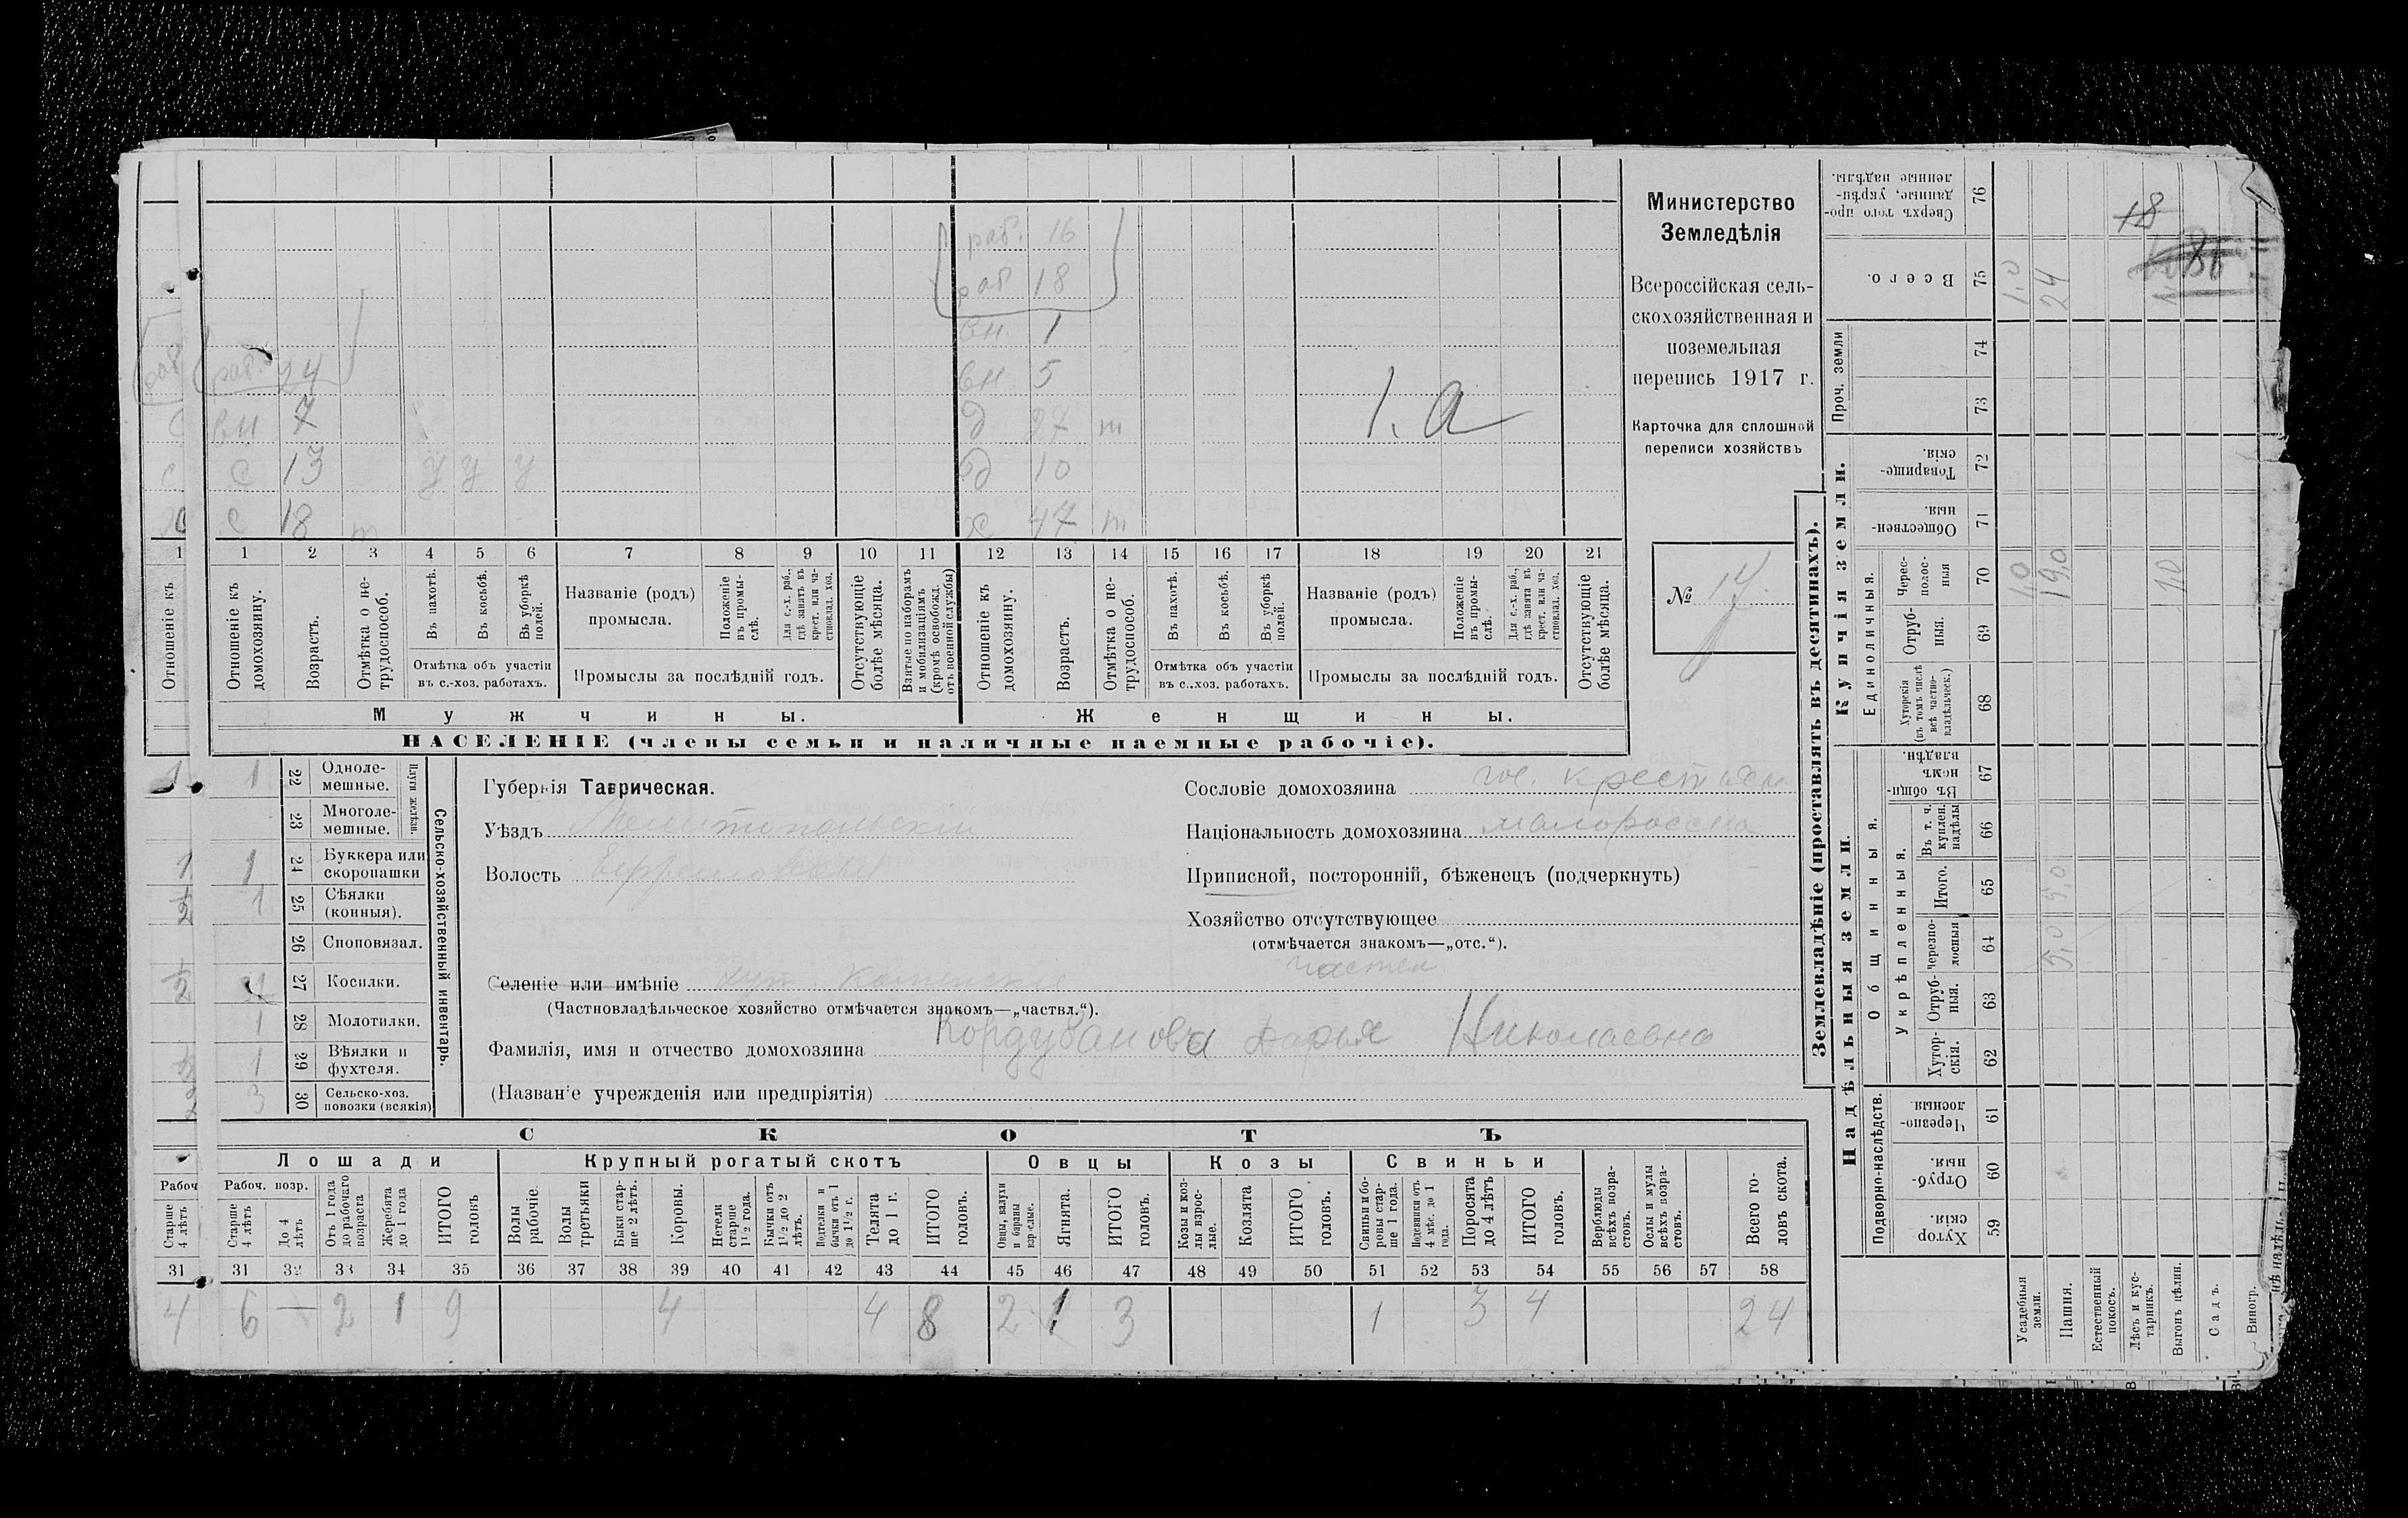 раб. 16
раб 18
вн. 1
раб. 24
вн 5
вн 7
д 27 т
с 13 у у у
д 10
с 18 т
х 47 т
1.а
1 2 3 4 5 6 7 8 9 10 11 12 13 14 15 16 17 18 19 20 21
Отношеніе къ
Отношеніе къ домохозяину.
Возрастъ.
Отмѣтка о не-трудоспособ.
Въ пахотѣ.
Въ косьбѣ.
Въ уборкѣ полей.
Отмѣтка объ участіи въ с.-хоз. работахъ.
Названіе (родъ) промысла.
Положеніе въ промы-слѣ.
Для с.-х. раб., гдѣ занятъ въ крест. или ча-стновлад. хоз.
Промыслы за послѣдній годъ.
Отсутствующіе болѣе мѣсяца.
Взятые по наборамъ и мобилизаціямъ (кромѣ освобожд. отъ военной службы)
Отношеніе къ домохозяину.
Возрастъ.
Отмѣтка о не-трудоспособ.
Въ пахотѣ.
Въ косьбѣ.
Въ уборкѣ полей.
Отмѣтка объ участіи въ с.-хоз. работахъ.
Названіе (родъ) промысла.
Положеніе въ промы-слѣ.
Для с.-х. раб., гдѣ занята въ крест. или ча-стновлад. хоз.
Промыслы за послѣдній годъ.
Отсутствующіе болѣе мѣсяца.
Мужчины.
Женщины.
НАСЕЛЕНІЕ (члены семьи и наличные наемные рабочіе).
Министерство
Земледѣлія
Всероссійская сель-
скохозяйственная и
поземельная
перепись 1917 г.
Карточка для сплошной
переписи хозяйствъ
№ 17.
1 1 22 Одноле-мешные.
23 Многоле-мешные.
Плуги желѣзн.
1 1 24 Буккера или скоропашки
1/2 1 25 Сѣялки (конныя).
26 Сноповязал.
1/2 27 Косилки.
1 28 Молотилки.
1 29 Вѣялки и фухтеля.
3 30 Сельско-хоз. повозки (всякія)
Сельско-хозяйственный инвентарь.
Губернія Таврическая.
Уѣздъ Мелитопольскій
Волость
Селеніе или имѣніе хут.
(Частновладѣльческое хозяйство отмѣчается знакомъ—„частвл.“).
Фамилія, имя и отчество домохозяина Кордубанова Дарья Николаевна
(Названіе учрежденія или предпріятія)
Сословіе домохозяина
Національность домохозяина
Приписной, посторонній, бѣженецъ (подчеркнуть)
Хозяйство отсутствующее
(отмѣчается знакомъ—„отс.“).
СКОТЪ
Лошади
Крупный рогатый скотъ
Овцы
Козы
Свиньи
Рабоч
Старше 4 лѣтъ
Рабоч. возр.
Старше 4 лѣтъ
До 4 лѣтъ
Отъ 1 года до рабочаго возраста
Жеребята до 1 года
ИТОГО головъ
Волы рабочіе
Волы третьяки
Быки стар-ше 2 лѣтъ.
Коровы.
Нетели старше 1½ года.
Бычки отъ 1½ до 2 лѣтъ.
Подтелки и бычки отъ 1 до 1½ г.
Телята до 1 г.
ИТОГО головъ.
Овцы, валухи и бараны взрослые.
Ягнята.
ИТОГО головъ.
Козы и коз-лы взрос-лые.
Козлята
ИТОГО головъ.
Свиньи и бо-ровы стар-ше 1 года.
Подсвинки отъ 4 мѣс. до 1 года.
Поросята до 4 лѣтъ
ИТОГО головъ.
Верблюды всѣхъ возра-стовъ.
Ослы и мулы всѣхъ возра-стовъ.
Всего го-ловъ скота.
31 31 32 33 34 35 36 37 38 39 40 41 42 43 44 45 46 47 48 49 50 51 52 53 54 55 56 57 58
4 6 — 2 1 9 4 4 8 2 1 3 1 3 4 24
Землевладѣніе (проставлять въ десятинахъ).
Купчія земли.
Надѣльныя земли.
Сверхъ того про-данные, укрѣп-ленные надѣлы. 76
Всего. 75
Проч. земли 74 73
Товарище-скія. 72
Обществен-ныя. 71
Единоличныя.
Черес-полос-ныя 70
Отруб-ныя. 69
Хуторскія (въ томъ числѣ всѣ частно-владѣльческ.) 68
Общинныя.
Въ общин-номъ владѣн. 67
Укрѣпленныя.
Въ т. ч. куплен. надѣлы 66
Итого. 65
Черезпо-лосныя 64
Отруб-ныя. 63
Хутор-скія. 62
Подворно-наслѣдств.
Черезпо-лосныя 61
Отруб-ныя. 60
Хутор-скія. 59
Усадебныя земли.
Пашня.
Естественный покосъ.
Лѣсъ и кус-тарникъ.
Выгонъ цѣлин.
Садъ.
Виногр.
18
1,0
24
1,0
19,0
1,0
5,0
5,0